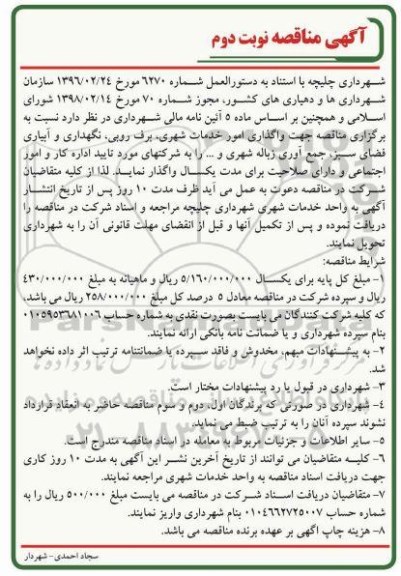 آگهی مناقصه نوبت دوم
شهرداری چلیچه با استناد به دستورالعمل شماره ۶۲۷۰ مورخ ۱۳۹۶/۰۲/۲۴ سازمان
شهرداری ها و دهیاری های کشور، مجوز شماره ۷۰ مورخ ۱۳۹۸/۰۲/۱۴ شورای
اسلامی و همچنین بر اساس ماده ۵ آئین نامه مالی شهرداری در نظر دارد نسبت به
برگزاری مناقصه جهت واگذاری امور خدمات شهری، برف روبی، نگهداری و آبیاری
فضای سبز، جمع آوری زباله شهری و ... را به شرکتهای مورد تایید اداره کار و امور
اجتماعی و دارای صلاحیت برای مدت یکسال واگذار نمایند. لذا از کلیه متقاضیان
شرکت در مناقصه دعوت به عمل می آید ظرف مدت ۱۰ روز پس از تاریخ انتشار
آگهی به واحد خدمات شهری شهرداری چلیچه مراجعه و اسناد شرکت در مناقصه را
دریافت نموده و پس از تکمیل آنها و قبل از انقضای مهلت قانونی آن را به شهرداری
تحویل نمایند.
شرایط مناقصه:
۱- مبلغ کل پایه برای یکسال ۵/۱۶۰/۰۰۰/۰۰۰ ریال و ماهیانه به مبلغ ۴۳۰/۰۰۰/۰۰۰
ریال و سپرده شرکت در مناقصه معادل ۵ درصد کل مبلغ ۲۵۸/۰۰۰/۰۰۰ ریال می باشد.
که کلیه شرکت کنندگان می بایست بصورت نقدی به شماره حساب ۰۱۰۵۹۵۳۶۸۱۰۰۶
بنام سپرده شهرداری و یا ضمانت نامه بانکی ارائه نمایند.
۲- به پیشنهادات مبهم، مخدوش و فاقد سپرده یا ضمانتنامه ترتیب اثر داده نخواهد
شد.
۳- شهرداری در قبول یا رد پیشنهادات مختار است.
۴- شهرداری در صورتی که برندگان اول، دوم و سوم مناقصه حاضر به انعقاد قرارداد
نشوند سپرده آنان را به ترتیب ضبط می نماید.
۵- سایر اطلاعات و جزئیات مربوط به معامله در اسناد مناقصه مندرج است.
۶- کلیه متقاضیان می توانند از تاریخ آخرین نشر این آگهی به مدت ۱۰ روز کاری
جهت دریافت اسناد مناقصه به واحد خدمات شهری مراجعه نمایند.
۷- متقاضیان دریافت اسناد شرکت در مناقصه می بایست مبلغ ۵۰۰/۰۰۰ ریال را به
شماره حساب ۰۱۰۴۶۶۲۷۲۵۰۰۷ بنام شهرداری واریز نمایند.
۸- هزینه چاپ آگهی بر عهده برنده مناقصه می باشد.
سجاد احمدی- شهردار